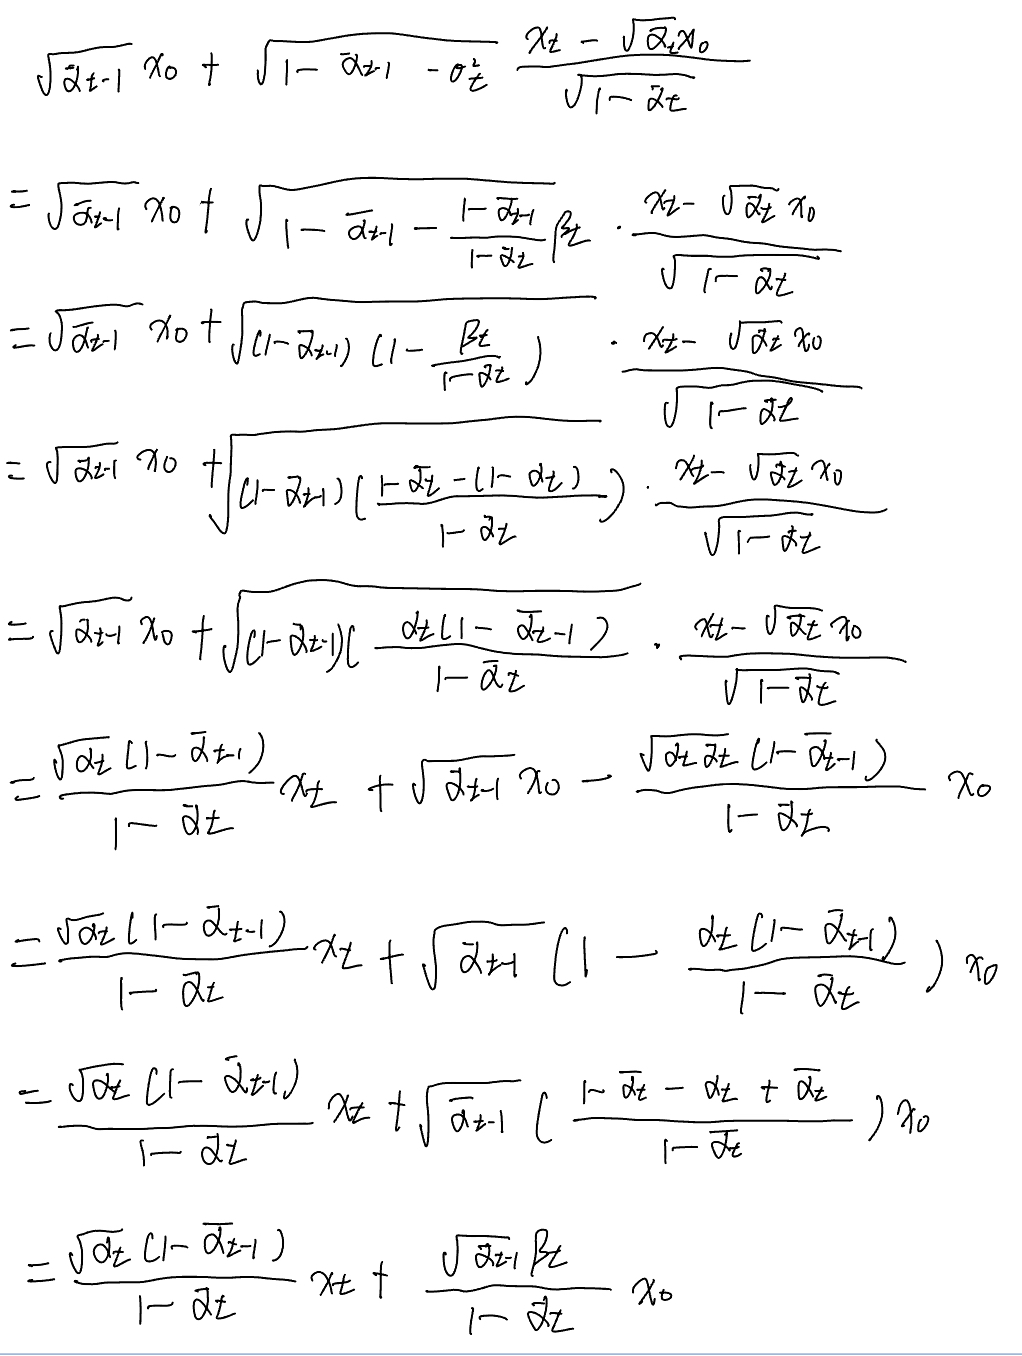 $\sqrt{\bar{\alpha}_{t-1}} x_0 + \sqrt{1 - \bar{\alpha}_{t-1} - \sigma_t^2} \frac{x_t - \sqrt{\bar{\alpha}_t} x_0}{\sqrt{1 - \bar{\alpha}_t}}$
$= \sqrt{\bar{\alpha}_{t-1}} x_0 + \sqrt{1 - \bar{\alpha}_{t-1} - \frac{1 - \bar{\alpha}_{t-1}}{1 - \bar{\alpha}_t} \beta_t} \cdot \frac{x_t - \sqrt{\bar{\alpha}_t} x_0}{\sqrt{1 - \bar{\alpha}_t}}$
$= \sqrt{\bar{\alpha}_{t-1}} x_0 + \sqrt{(1 - \bar{\alpha}_{t-1}) (1 - \frac{\beta_t}{1 - \bar{\alpha}_t})} \cdot \frac{x_t - \sqrt{\bar{\alpha}_t} x_0}{\sqrt{1 - \bar{\alpha}_t}}$
$= \sqrt{\bar{\alpha}_{t-1}} x_0 + \sqrt{(1 - \bar{\alpha}_{t-1}) (\frac{1 - \bar{\alpha}_t - (1 - \alpha_t)}{1 - \bar{\alpha}_t})} \cdot \frac{x_t - \sqrt{\bar{\alpha}_t} x_0}{\sqrt{1 - \bar{\alpha}_t}}$
$= \sqrt{\bar{\alpha}_{t-1}} x_0 + \sqrt{(1 - \bar{\alpha}_{t-1}) ( \frac{\alpha_t (1 - \bar{\alpha}_{t-1})}{1 - \bar{\alpha}_t}} \cdot \frac{x_t - \sqrt{\bar{\alpha}_t} x_0}{\sqrt{1 - \bar{\alpha}_t}}$
$= \frac{\sqrt{\alpha_t} (1 - \bar{\alpha}_{t-1})}{1 - \bar{\alpha}_t} x_t + \sqrt{\bar{\alpha}_{t-1}} x_0 - \frac{\sqrt{\alpha_t \bar{\alpha}_t} (1 - \bar{\alpha}_{t-1})}{1 - \bar{\alpha}_t} x_0$
$= \frac{\sqrt{\alpha_t} (1 - \bar{\alpha}_{t-1})}{1 - \bar{\alpha}_t} x_t + \sqrt{\bar{\alpha}_{t-1}} (1 - \frac{\alpha_t (1 - \bar{\alpha}_{t-1})}{1 - \bar{\alpha}_t}) x_0$
$= \frac{\sqrt{\alpha_t} (1 - \bar{\alpha}_{t-1})}{1 - \bar{\alpha}_t} x_t + \sqrt{\bar{\alpha}_{t-1}} (\frac{1 - \bar{\alpha}_t - \alpha_t + \bar{\alpha}_t}{1 - \bar{\alpha}_t}) x_0$
$= \frac{\sqrt{\alpha_t} (1 - \bar{\alpha}_{t-1})}{1 - \bar{\alpha}_t} x_t + \frac{\sqrt{\bar{\alpha}_{t-1}} \beta_t}{1 - \bar{\alpha}_t} x_0$